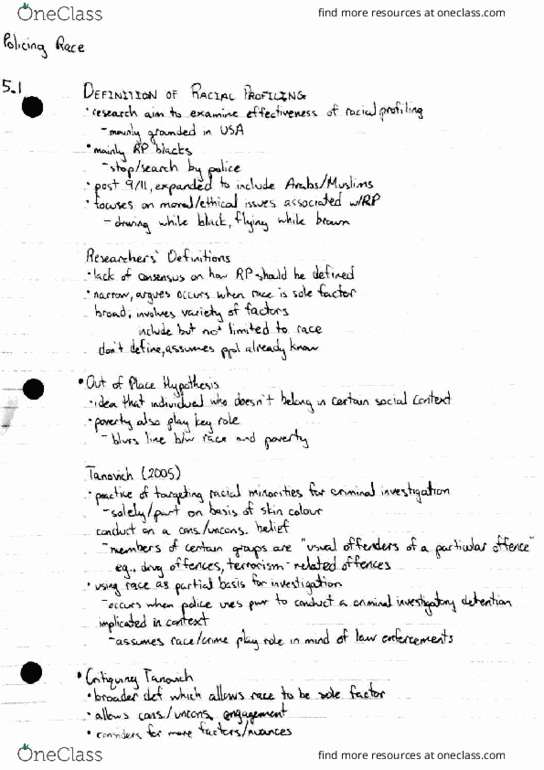 OneClass
find more resources at oneclass.com
Policing Race
5.1
DEFINITION OF RACIAL PROFILING
• research aim to examine effectiveness of racial profiling
- mainly grounded in USA
• mainly RP blacks
- stop/search by police
• post 9/11, expanded to include Arabs/Muslims
• focuses on moral/ethical issues associated w/RP
- driving while black, flying while brown
Researchers' Definitions
• lack of consensus on how RP should be defined
• narrow, argues occurs when race is sole factor
broad, involves variety of factors
include but not limited to race
don't define, assumes ppl already know
• Out of Place Hypothesis
• idea that individual who doesn't belong in certain social context
• poverty also play key role
- blurs line b/w race and poverty
Tanovich (2005)
• practice of targeting racial minorities for criminal investigation
- solely/part on basis of skin colour
conduct on a cons./uncons. belief
- members of certain groups are "usual offenders of a particular offence"
eg., drug offences, terrorism-related offences
• using race as partial basis for investigation
- occurs when police uses pwr to conduct a criminal investigatory detention
implicated in context
- assumes race/crime play role in mind of law enforcements
• Critiquing Tanovich
• broader def which allows race to be sole factor
• allows cons./uncons. engagement
• considers for more factors/nuances
OneClass
find more resources at oneclass.com